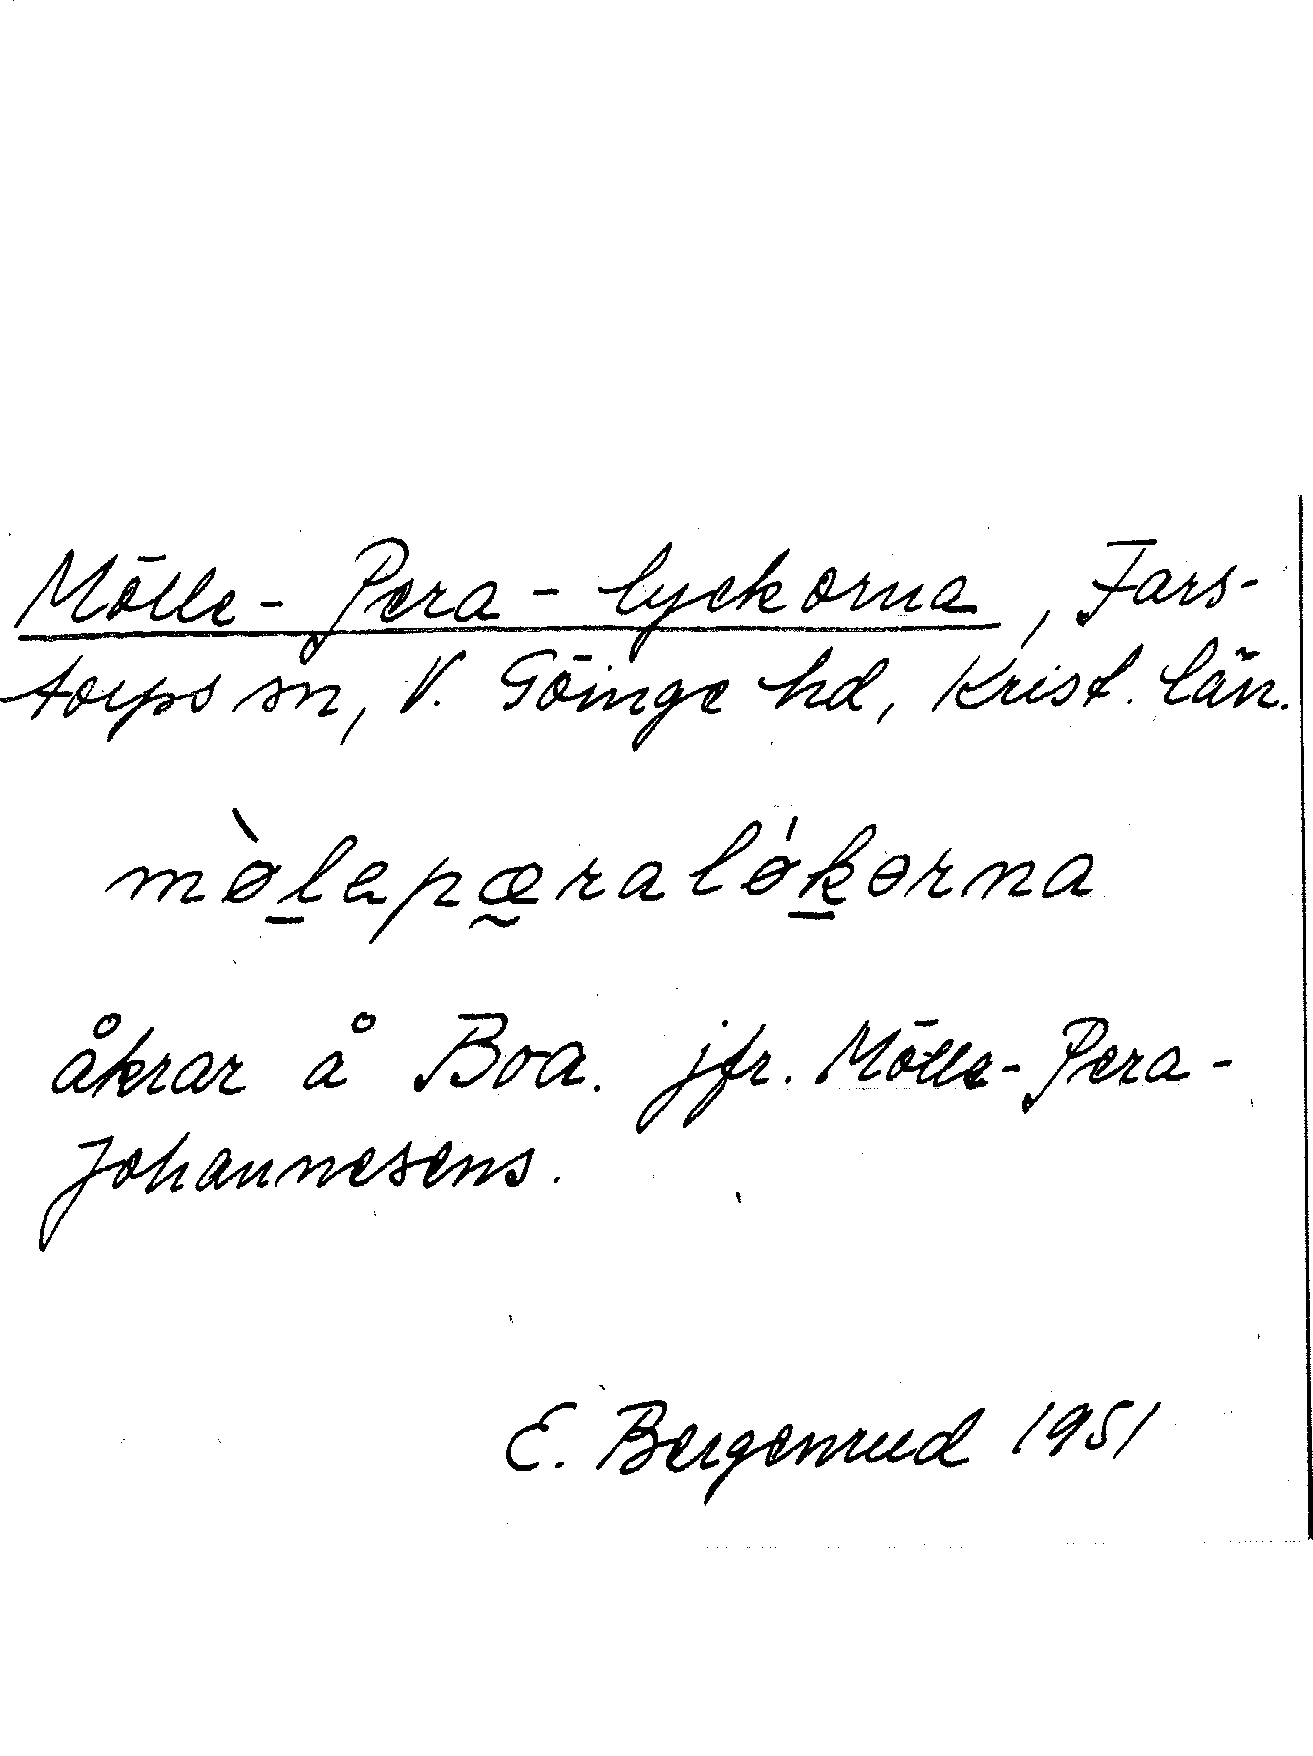 Mölle-Pera-lyckorna, Fars-
torps sn, V. Göinge hd, Krist. län.
mø̀l̲apæ̰raløḱ̲ərna
åkrar å Boa. jfr. Mölle-Pera-
Johannesens.
E. Bergenrud 1951